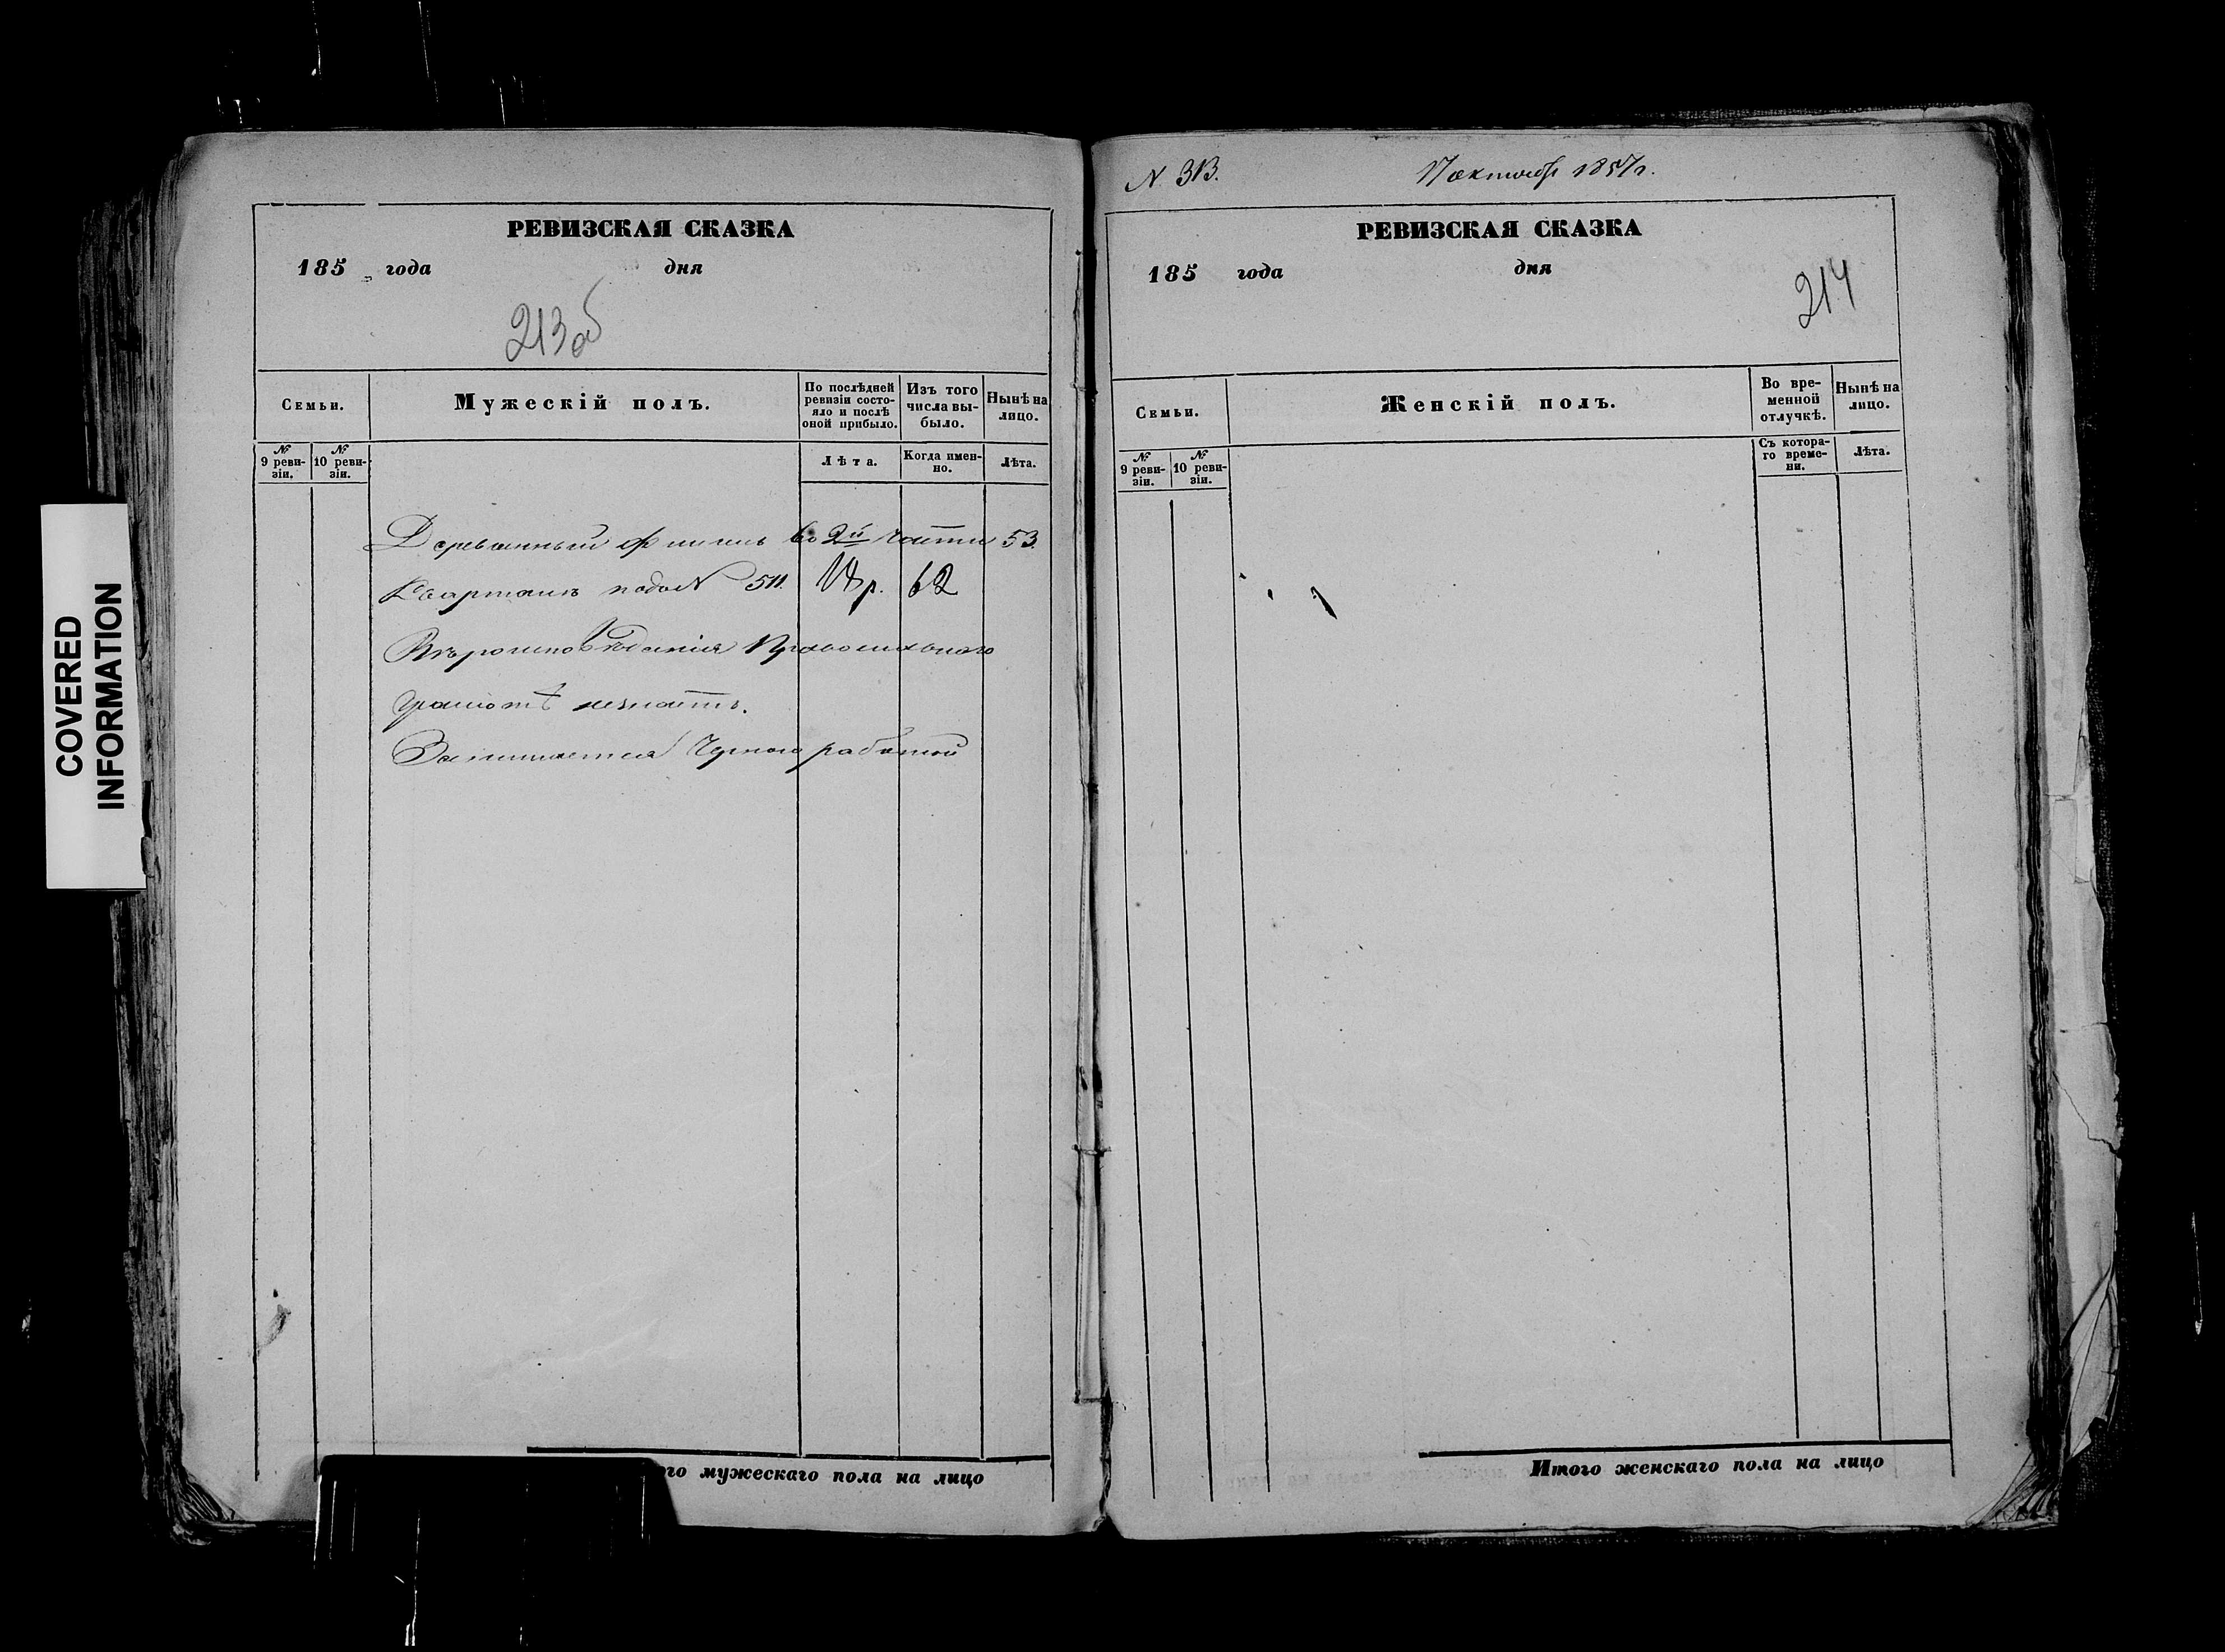 COVERED
INFORMATION
РЕВИЗСКАЯ СКАЗКА
185 года дня
213об
Семьи.
Мужескій полъ.
По послѣдней ревизіи состо-
яло и послѣ
оной прибыло.
Изъ того
числа вы-
было.
Нынѣ на
лицо.
№
9 реви-
зіи.
№
10 реви-
зіи.
Лѣта.
Когда имен-
но.
Лѣта.
Деревянный во 2й части 53
Квартала подъ № 511. 62
Вѣроисповѣданія Православнаго
Грамотѣ незнаетъ.
Занимается Черною работой
го мужескаго пола на лицо
N 313. 17 октября 1857г.
РЕВИЗСКАЯ СКАЗКА
185 года дня
214
Семьи.
Женскій полъ.
Во вре-
менной
отлучкѣ.
Нынѣ на
лицо.
№
9 реви-
зіи.
№
10 реви-
зіи.
Съ котора-
го време-
ни.
Лѣта.
Итого женскаго пола на лицо